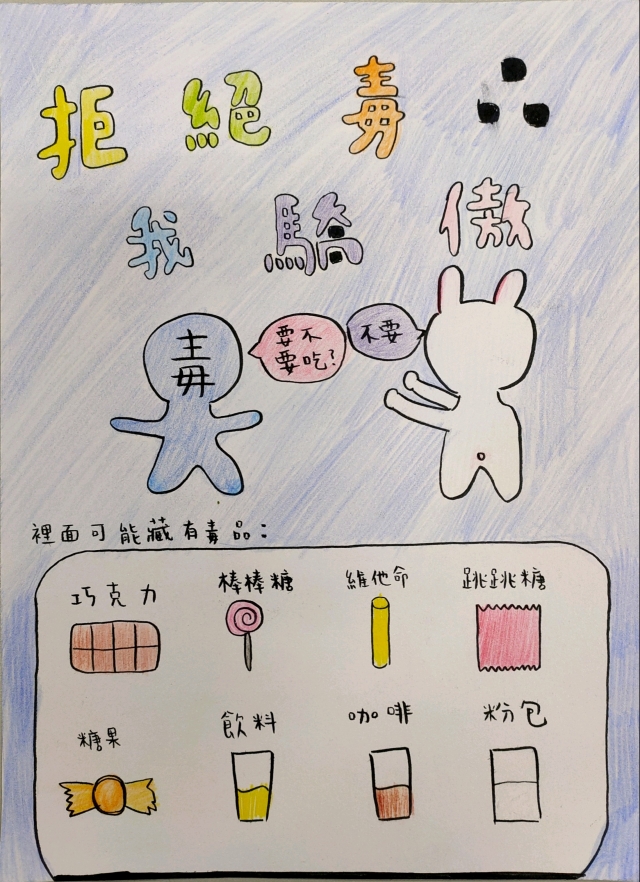 拒絕毒品
我驕傲
毒
要不
要吃?
不要
裡面可能藏有毒品:
巧克力
棒棒糖
維他命
跳跳糖
糖果
飲料
咖啡
粉包